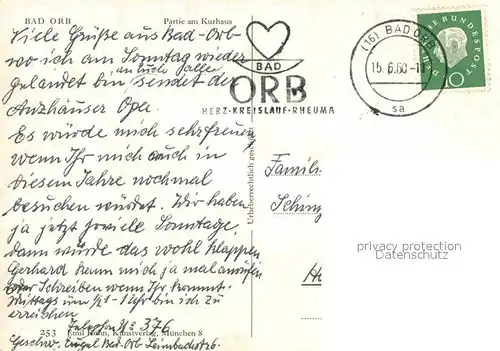 BAD ORB Partie am Kurhaus
Viele Grüße aus Bad-Orb
wo ich am Sonntag wieder
gelandet bin sendet
an Euch Alle
Opa
Es würde mich sehr freuen
wenn Ihr mich auch in
diesem Jahre nochmal
besuchen würdet. Wir haben
ja jetzt soviele Sonntage,
dann würde das wohl klappen
Gerhard kann mich ja mal anrufen
oder Schreiben wenn Ihr kommt.
Mittags um ½1 - 1 Uhr bin ich zu
erreichen
Telefon No 376
253 Emil Köhn, Kunstverlag, München 8
Geschw. Engel Bad-Orb
Urheberrechtlich geschützt
BAD
ORB
HERZ-KREISLAUF-RHEUMA
(16) BAD ORB
15.6.60
sa
DEUTSCHE BUNDESPOST
10
Famili
privacy protection
Datenschutz